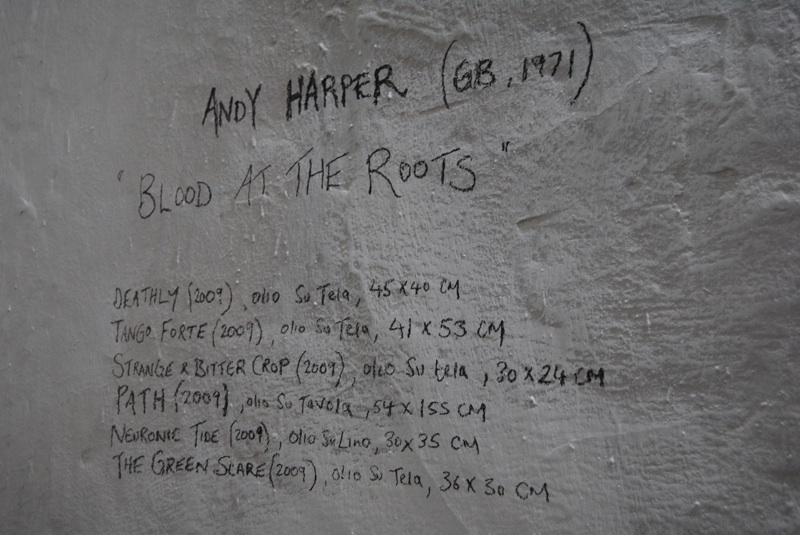 ANDY HARPER (GB, 1971)
"BLOOD AT THE ROOTS"
DEATHLY (2009), olio Su Tela, 45 X 40 CM
TANGO FORTE (2009), olio Su Tela, 41 X 53 CM
STRANGE & BITTER CROP (2009), olio Su tela, 30 X 24 CM
PATH (2009), olio Su Tavola, 54 X 155 CM
NEURONIC TIDE (2009), olio Su Lino, 30 X 35 CM
THE GREEN SCARE (2009), olio Su Tela, 36 X 30 CM